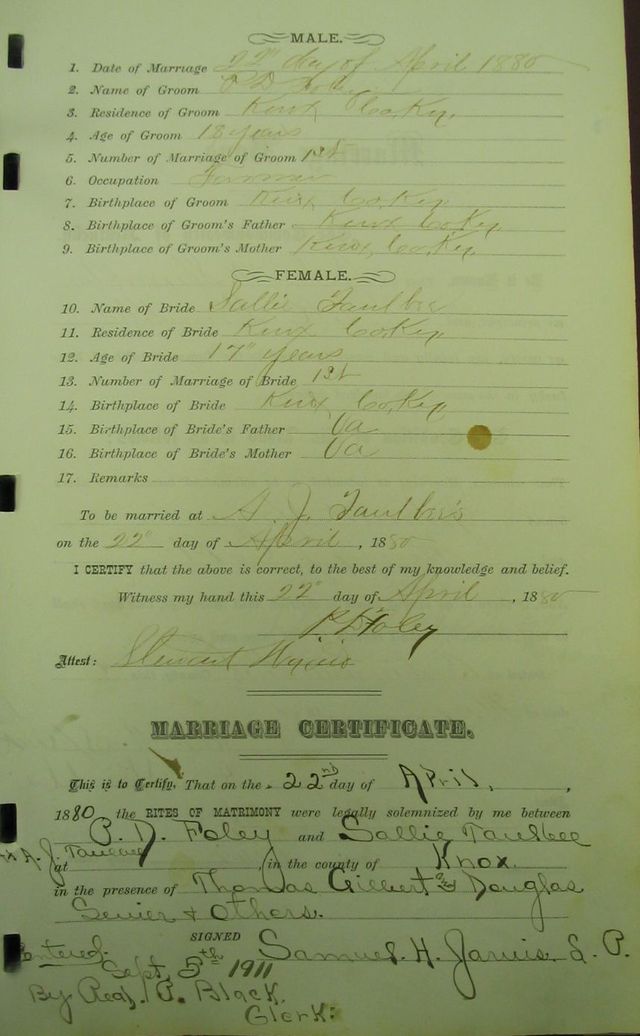 MALE.
1. Date of Marriage 22nd day of April 1880
2. Name of Groom P D Foley
3. Residence of Groom Knox Co Ky,
4. Age of Groom 18 years
5. Number of Marriage of Groom 1st
6. Occupation Farmer
7. Birthplace of Groom Knox Co Ky
8. Birthplace of Groom's Father Knox Co Ky,
9. Birthplace of Groom's Mother Knox, Co Ky
FEMALE.
10. Name of Bride Sallie
11. Residence of Bride Knox Co Ky
12. Age of Bride 17" years
13. Number of Marriage of Bride 1st
14. Birthplace of Bride Knox, Co, Ky
15. Birthplace of Bride's Father Va
16. Birthplace of Bride's Mother Va
17. Remarks
To be married at A. J.
on the 22" day of April, 1880
I CERTIFY that the above is correct, to the best of my knowledge and belief.
Witness my hand this 22" day of April, 1880
P D Foley
Attest: Stewart
MARRIAGE CERTIFICATE.
This is to Certify, That on the 22nd day of April,
1880 the RITES OF MATRIMONY were legally solemnized by me between
P. D. Foley and Sallie Taulbee
at A. J. in the county of Knox
in the presence of Thomas Gilbert & Douglas
Senier & Others.
SIGNED Samuel. H. Jarvis,
Entered. Sept, 5th 1911
By Read. P. Black.
Clerk: